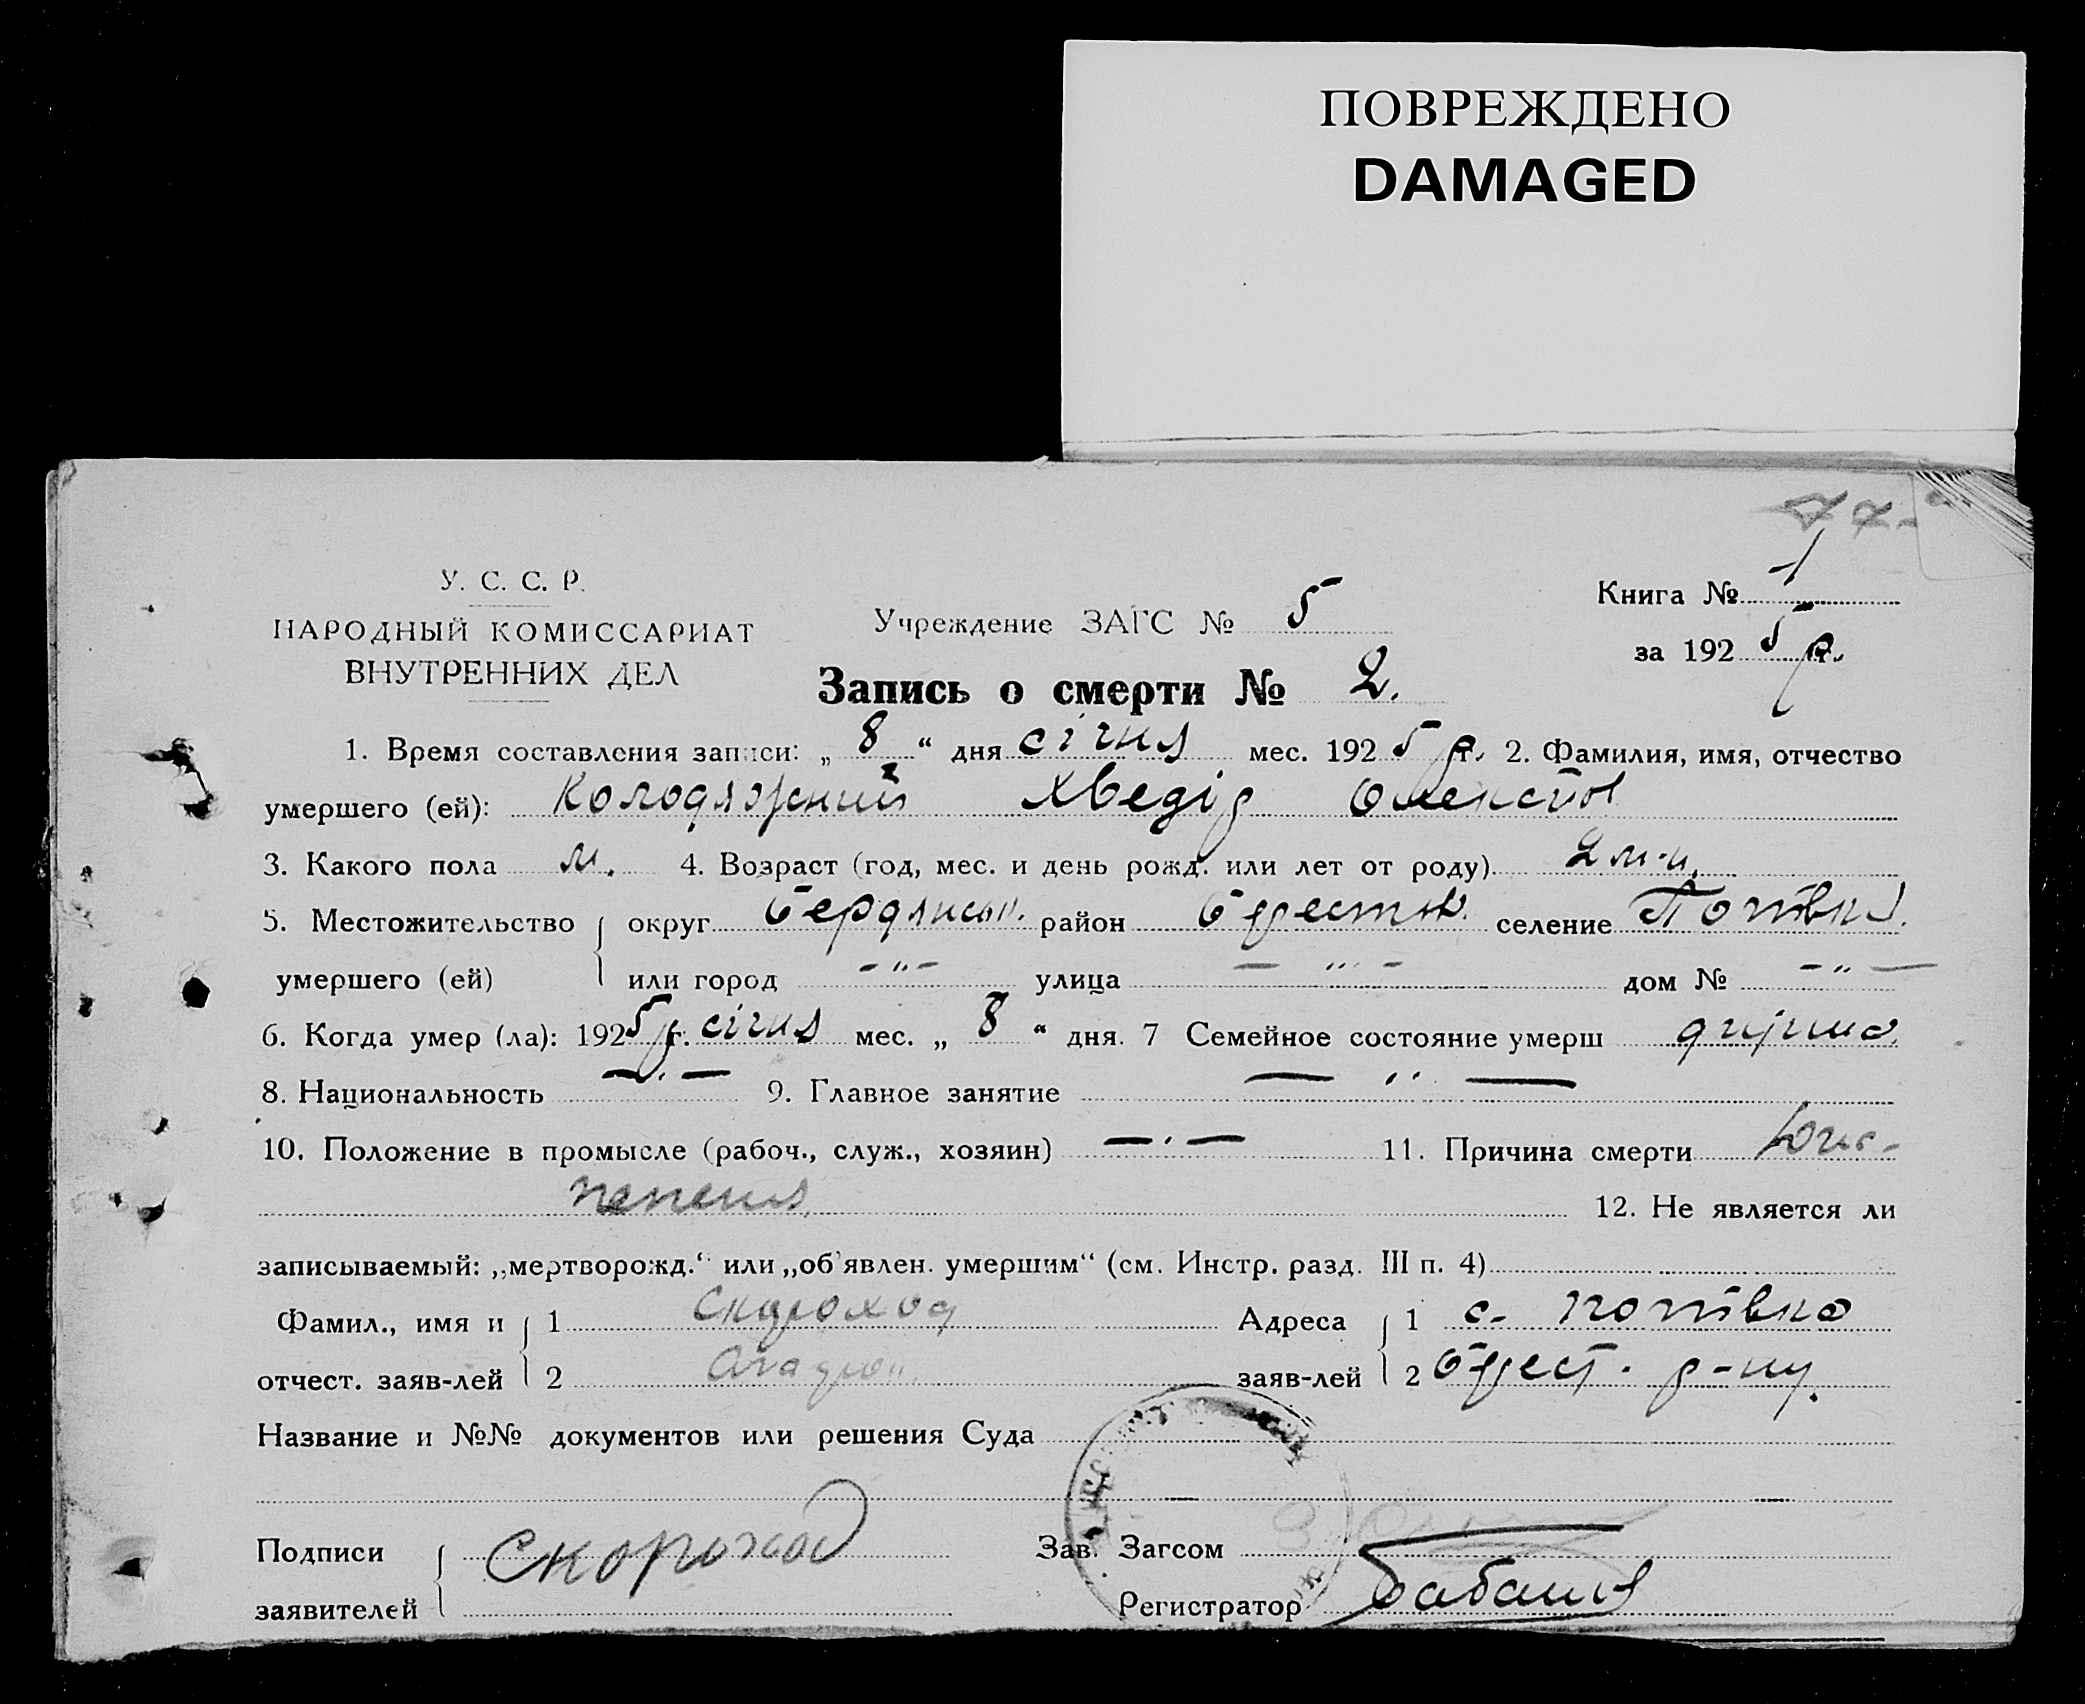 ПОВРЕЖДЕНО
DAMAGED
У. С. С. Р.
НАРОДНЫЙ КОМИССАРИАТ
ВНУТРЕННИХ ДЕЛ
Учреждение ЗАГС № 5
Книга № 1
за 1925 р.
Запись о смерти № 2.
1. Время составления записи: „ 8 “ дня січня мес. 1925 р. 2. Фамилия, имя, отчество
умершего (ей): Колодяжний Хведір Олексієв
3. Какого пола м. 4. Возраст (год, мес. и день рожд. или лет от роду) 2 м-ц.
5. Местожительство округ Бердянськ. район селение
умершего (ей) или город - „ - улица - „ - дом № - „ -
6. Когда умер (ла): 1925 р. січня мес. „ 8 “ дня. 7 Семейное состояние умерш дитина
8. Национальность 9. Главное занятие — „ —
10. Положение в промысле (рабоч., служ., хозяин) 11. Причина смерти
12. Не является ли
записываемый: „мертворожд.“ или „об'явлен. умершим“ (см. Инстр. разд. III п. 4)
Фамил., имя и 1 Скороход Адреса 1 с.
отчест. заяв-лей 2 заяв-лей 2 р-ну.
Название и №№ документов или решения Суда
Подписи Скороход Зав. Загсом
заявителей Регистратор